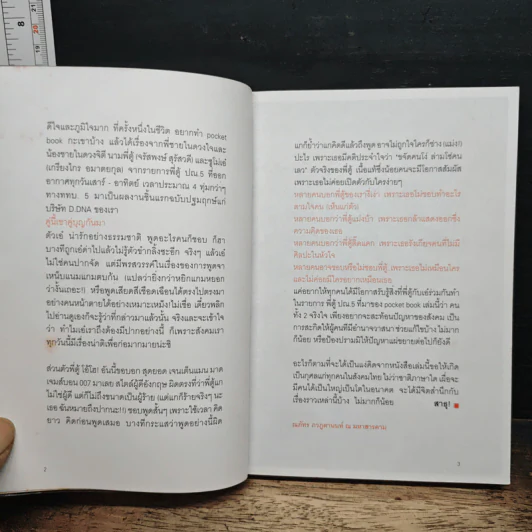 ดีใจและภูมิใจมาก ที่ครั้งหนึ่งในชีวิต อยากทำ pocket
book กะเขาบ้าง แล้วได้เรื่องจากพี่ชายในดวงใจและ
น้องชายในดวงจิตี นามพี่ตู้ (จรัสพงษ์ สุรัสวดี) และซูโม่เอ๋
(เกรียงไกร อมาตยกุล) จากรายการพี่ตู้ ปณ.5 ที่ออก
อากาศทุกวันเสาร์ - อาทิตย์ เวลาประมาณ 4 ทุ่มกว่าๆ
ทางททบ. 5 มาเป็นผลงานชิ้นแรกฉบับปฐมฤกษ์แก่
บริษัท D.DNA ของเรา
คู่นี้เขาคู่บุญกันมา
ตัวเอ๋ น่ารักอย่างธรรมชาติ พูดอะไรคนก็ชอบ ก็ฮา
บางทีถูกเอ๋ด่าไปแล้วไม่รู้ตัวซำกลิ้งซะอีก จริงๆ แล้วเอ๋
ไม่ใช่คนปากจัด แต่มีพรสวรรค์ในเรื่องของการพูดจา
เหน็บแนมแกมตบกัน (แปลว่ายิ่งกว่าหยิกแกมหยอก
ว่างั้นเถอะ!) หรือพูดเสียดสีเชือดเฉือนได้ตรงไปตรงมา
อย่างคนหน้าตายได้อย่างเหมาะเหม็งไม่เชื่อ เดี๋ยวพลิก
ไปอ่านดูเองก็จะรู้ว่าที่กล่าวมาแล้วนั้น จริงและจะเข้าใจ
ว่า ทำไมเอ๋เราถึงต้องมีปากอย่างนี้ ก็เพราะสังคมเรา
ทุกวันนี้มีเรื่องน่าตีเพื่อก่อมากมายน่ะซิ
ส่วนตัวพี่ตู้ โอ้โฮ! อันนี้ขอบอก สุดยอด เจนเต้นแมน มาด
เจมส์บอน 007 มาเลย สไตล์ผู้ดีอังกฤษ ผิดตรงที่ว่าพี่ตู้แก
ไม่ใช่ผู้ดี แต่ก็ไม่ถึงขนาดเป็นผู้ร้าย (แต่แกก็ร้ายจริงๆ นะ
เธอ ฉันหมายถึงปากนะ!!) ชอบพูดสั้นๆ เพราะใช้เวลา คิด
ยาว คิดก่อนพูดเสมอ บางทีกระแสว่าพูดอย่างนี้ผิด
2
แกก็ย้ำว่าแกคิดดีแล้วถึงพูด อาจไม่ถูกใจใครก็ช่าง (แม่ง!)
ปะไร เพราะเธอมีคติประจำใจว่า "ขจัดคนโง่ ส่ามโช่คน
เลว" ตัวจริงของพี่ตู้ เนื้อแท้ซึ่งน้อยคนจะมีโอกาสสัมผัส
เพราะเธอไม่ค่อยเปิดตัวกับใครง่ายๆ
หลายคนบอกพี่ตู้ของเราขี้เก๊ง เพราะเธอไม่ชอบทำอะไร
ตามใจคน
หลายคนบอกว่าพี่ตู้แม่งบ้า เพราะเธอกล้าแสดงออกซึ่ง
ความคิดของเธอ
หลายคนบอกว่าพี่ตู้ดัดแตก เพราะเธอรังเกียจคนที่ไม่มี
ศิลปะในหัวใจ
หลายคนอาจชอบหรือไม่ชอบพี่ตู้ เพราะเธอไม่เหมือนใคร
และไม่ค่อยมีใครอยากเหมือนเธอ
แค่อยากให้ทุกคนได้มีโอกาสรับรู้สิ่งที่พี่ตู้กับเอ๋ร่วมกันทำ
ในรายการ พี่ตู้ ปณ.5 ที่มาของ pocket book เล่มนี้ว่า คน
ทั้ง 2 จริงใจ เพียงอยากจะสะท้อนปัญหาของสังคม เป็น
การสะกิดให้ผู้คนที่มีอำนาจวาสนา ช่วยแก้ไขบ้าง ไม่มาก
ก็น้อย หรือป้องปรามมิให้ปัญหาแม่ขยายต่อไปก็ยังดี
อะไรก็ตามที่จะได้เป็นแง่คิดจากหนังสือเล่มนี้ขอให้เกิด
เป็นกุศลแก่ทุกคนในสังคมไทย ไม่ว่าชาติภาษาใด เผื่อจะ
มีคนได้เป็นใหญ่เป็นโตในอนาคต จะได้มีจิตสำนึกกับ
เรื่องราวเหล่านี้บ้าง ไม่มากก็น้อย สาธุ!
3